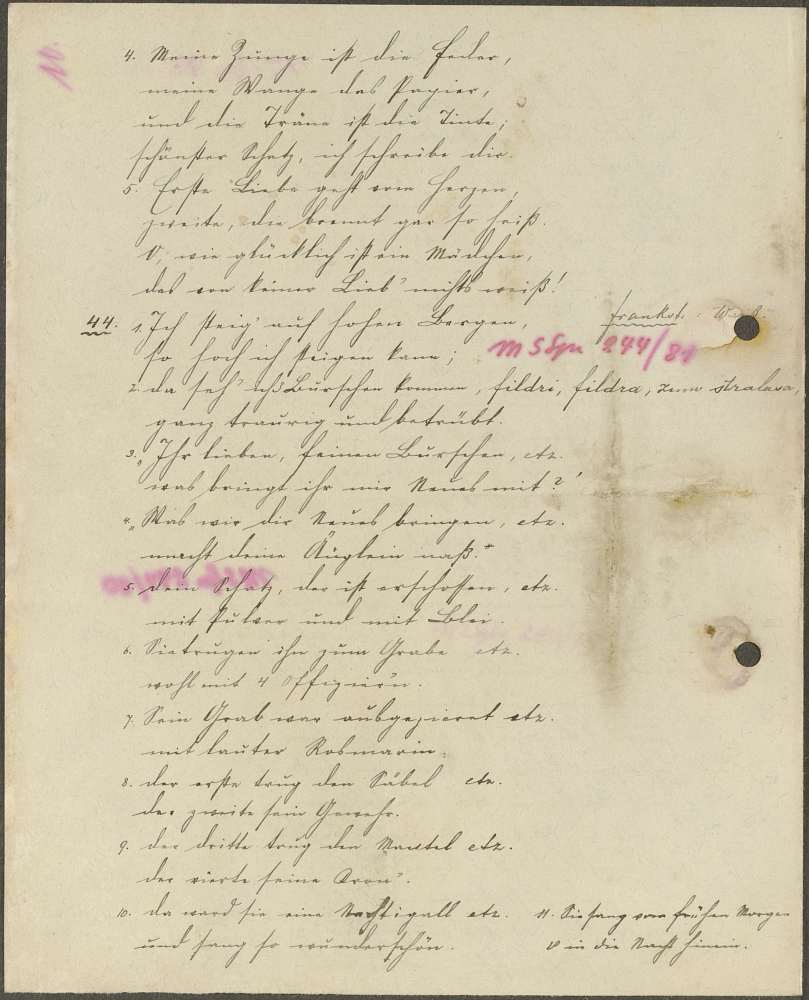 4. Meine Zunge ist die Feder,
meine Wange das Papier,
und die Träne ist die Tinte;
schönster Schatz, ich schreibe dir.
5. Erste Liebe geht vom Herzen,
zweite, die brennt gar so heiß.
O, wie glücklich ist ein Mädchen,
das von keiner Lieb' nichts weiß!
44. 1. Ich steig' auf hohen Bergen,
so hoch ich steigen kann;
2. da seh' ich 3 Burschen kommen, fildri, fildra, zum stralava,
ganz traurig und betrübt.
3. „Ihr lieben, feinen Burschen, etz.
was bringt ihr mir Neues mit?"
4. „Was wir dir Neues bringen, etz.
macht deine Äuglein naß."
5. dein Schatz, der ist erschossen, etz.
mit Pulver und mit Blei.
6. Sie trugen ihn zum Grabe etz.
wohl mit 4 Offiziern.
7. Sein Grab war ausgezieret etz.
mit lauter Rosmarin.
8. der erste trug den Säbel etz.
der zweite sein Gewehr.
9. der dritte trug den Mantel etz.
der vierte seine Kron'.
10. da ward sie eine Nachtigall etz.
und sang so wunderschön.
11. Sie sang vom frühen Morgen
in die Nacht hinein.